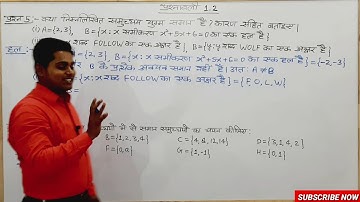 प्रश्नावली 1.2
प्रश्न 5:- क्या निम्नलिखित समुच्चय युग्म समान हैं? कारण सहित बताइए।
(i) A={2,3}, B={x:x समीकरण x²+5x+6=0 का एक हल है}
शब्द FOLLOW का एक अक्षर है}, B={y:y शब्द WOLF का एक अक्षर है}
हल:- {2,3}, B={x:x समीकरण x²+5x+6=0 का एक हल है}={-2,-3}
B के प्रत्येक अवयव समान नहीं हैं। अतः A≠B
{x:x शब्द FOLLOW का एक अक्षर है}={F,O,L,W}
में से समान समुच्चयों का चयन कीजिए:
B={1,2,3,4} C={4,8,12,14} D={3,1,4,2}
F={0,a} G={1,-1} H={0,1}
SUBSCRIBE NOW